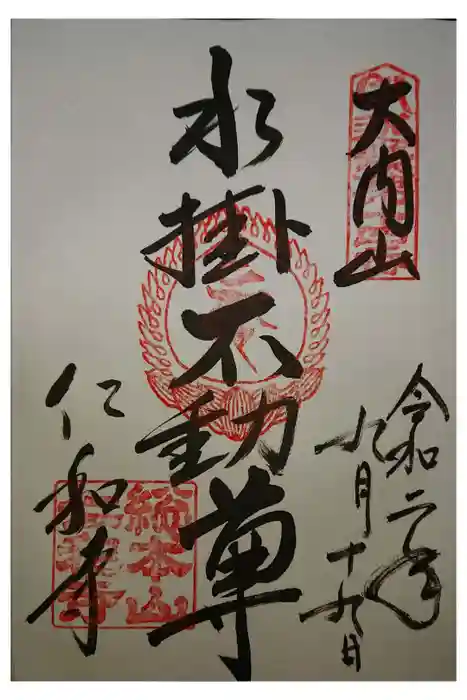 大内山
令和二年
九月十九日
水掛不動尊
仁和寺
総本山
仁和寺